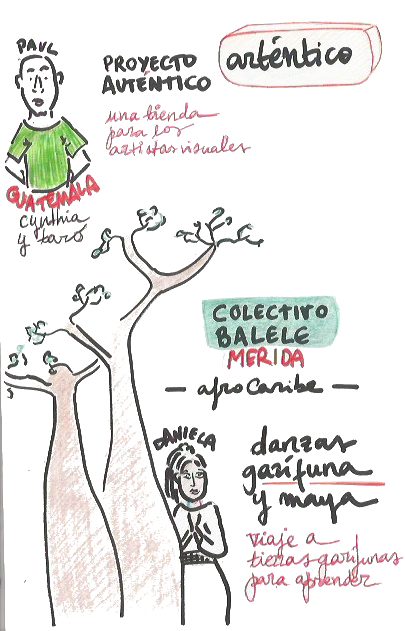 PAUL
PROYECTO
AUTÉNTICO
arténtico
una tienda
para los
artistas visuales
GUATEMALA
cynthia
y taro
COLECTIVO
BALELE
MERIDA
— afroCaribe —
DANIELA
danzas
garífuna
y maya
viaje a
tierras garifunas
para aprender